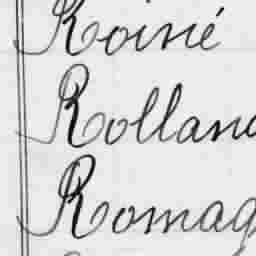 Roiné
Rolland
Romag